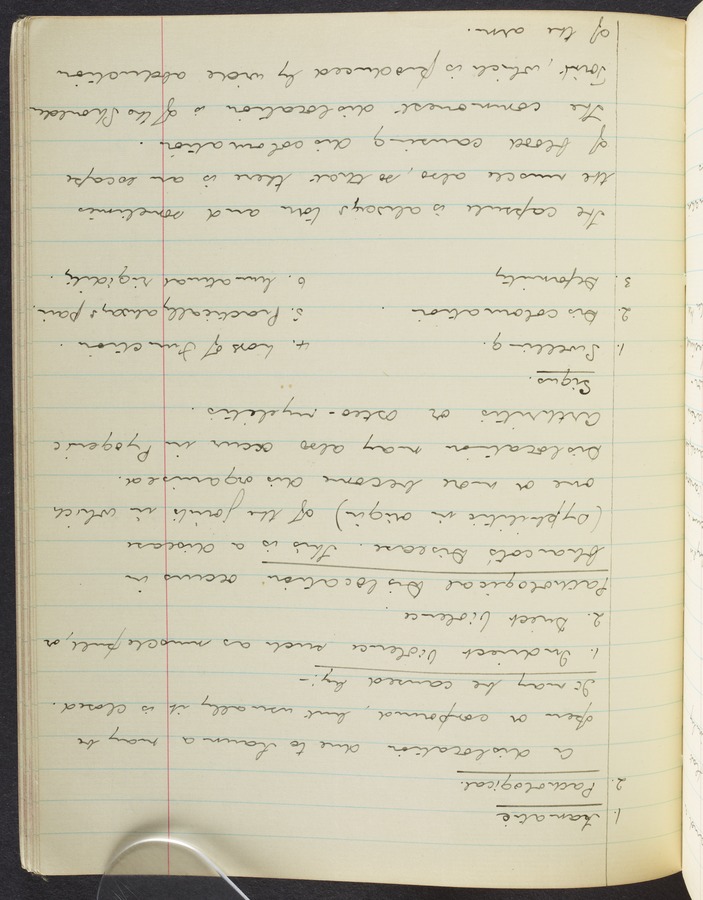 1. Tramatic
2. Pathological.
a dislocation due to trauma may be
open or compound, but usually it is closed.
It may be caused by:-
1. Indirect Violence such as muscle pull, or
2. Direct Violence.
Pathological Dislocation occurs in
Disease. This is a disease
(Syphilitic in origin) of the joints in which
one or more become disorganised.
Dislocation may also occur in Pyogenic
arthritis or Osteo-myelitis.
Signs.
1. Swelling. 4. Loss of Function.
2. Discolouration. 5. Practically always pain.
3. Deformity 6. Unnatural rigidity.
The capsule is always torn and sometimes
the muscle also, so that there is an escape
of blood causing discolouration.
The commonest dislocation is of the Shoulder
Joint, which is produced by wide abduction
of the arm.